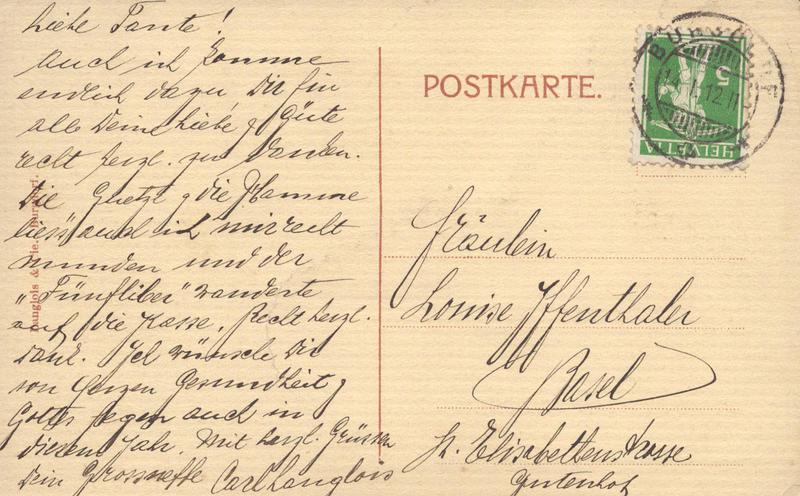 Liebe Tante!
Auch ich komme
endlich dazu Dir für
alle Deine Liebe & Güte
recht herzl. zu danken.
Die Guetzi & die Hamme
liess auch ich mir recht
munden und der
"Fünfliber" wanderte
auf die Kasse. Recht herzl.
Dank. Ich wünsche Dir
von Herzen Gesundheit &
Gottes Segen auch in
diesem Jahr. Mit herzl. Grüssen
Dein Grossneffe Carl Langlois
Langlois & Cie. Burgdorf.
POSTKARTE.
BURGDORF
12
5
HELVETIA
Fräulein
Louise Iffenthaler
Basel
St. Elisabethenstrasse
Gutenhof